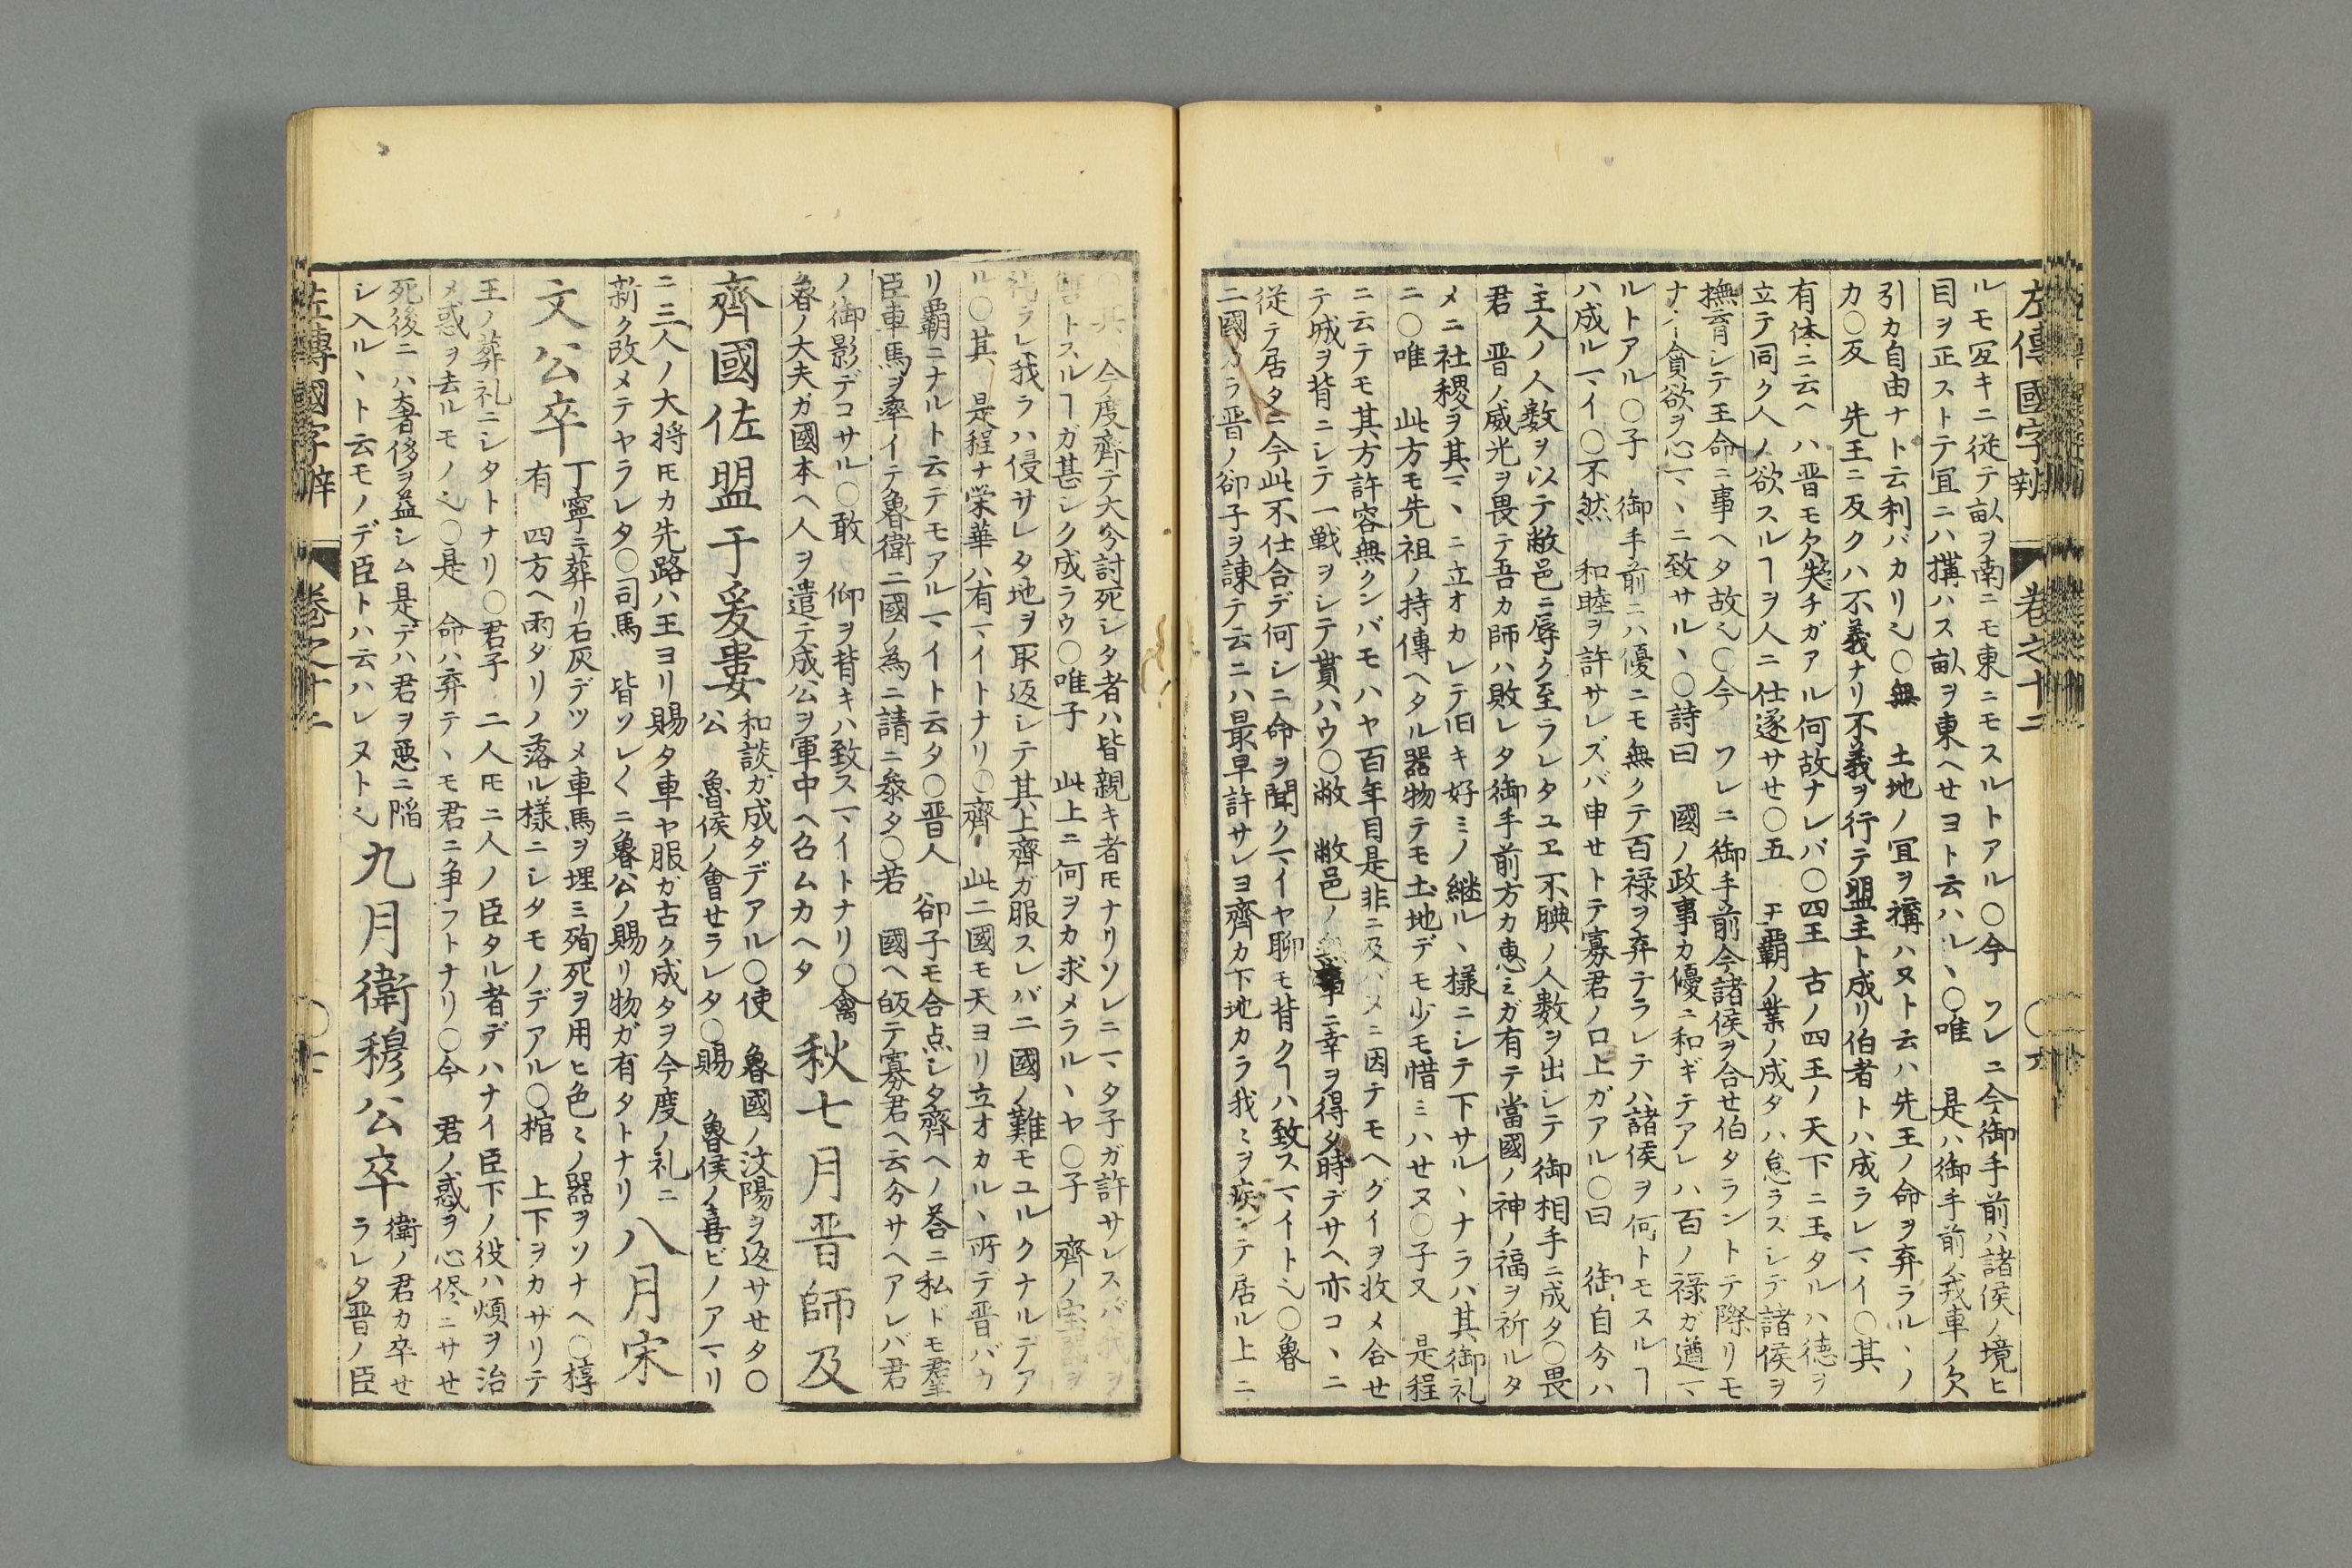 左傳國字辨 巻之十二 ○六
ルモ冝キニ従テ畝ヲ南ニモ東ニモスルトアル○今 ワレニ今御手前ハ諸侯ノ境ヒ
目ヲ正ストテ冝ニハ搆ハス畝ヲ東ヘセヨト云ハル丶○唯 是ハ御手前ノ戎車ノ欠
引カ自由ナト云利バカリ也○無 土地ノ冝ヲ搆ハヌト云ハ先王ノ命ヲ弃ラル丶ノ
カ○反 先王ニ反クハ不義ナリ不義ヲ行テ盟主ト成リ伯者トハ成ラレマイ○其
有体ニ云ヘハ晋モ欠失チガアル何故ナレバ○四王 古ノ四王ノ天下ニ王タルハ徳ヲ
立テ同ク人ノ欲スルヿヲ人ニ仕遂サせ○五 王覇ノ業ノ成タハ怠ラスシテ諸侯ヲ
撫育シテ王命ニ事ヘタ故也○今 ワレニ御手前今諸侯ヲ合せ伯タラントテ際リモ
ナイ貪欲ヲ心マ丶ニ致サル丶○詩曰 國ノ政事カ優ニ和ギテアレハ百ノ禄ガ遒マ
ルトアル○子 御手前ニハ優ニモ無クテ百禄ヲ弃テラレテハ諸侯ヲ何トモスルヿ
ハ成ルマイ○不然 和睦ヲ許サレズバ申せトテ寡君ノ口上ガアル○曰 御自分ハ
主人ノ人数ヲ以テ敝邑ニ辱ク至ラレタユヱ不腆ノ人数ヲ出シテ御相手ニ成タ○畏
君 晋ノ威光ヲ畏テ吾カ師ハ敗レタ御手前方カ惠ミガ有テ當國ノ神ノ福ヲ祈ルタ
メニ社稷ヲ其マ丶ニ立オカレテ旧キ好ミノ継ル丶様ニシテ下サル丶ナラハ其御礼
ニ○唯 此方モ先祖ノ持傳ヘタル器物テモ土地デモ少モ惜ミハせヌ○子又 是程
ニ云テモ其方許容無クンバモハヤ百年目是非ニ及バメニ因テモヘグイヲ收メ合せ
テ城ヲ背ニシテ一戦ヲシテ貰ハウ○敝 敝邑ノ 事ニ幸ヲ得タ時デサヘ亦コ丶ニ
従テ居タニ今此不仕合デ何シニ命ヲ聞クマイヤ聊モ背クヿハ致スマイト也○魯
二國カラ晋ノ卻子ヲ諫テ云ニハ最早許サレヨ齊カ下地カラ我ミヲ疾ンテ居ル上ニ
今度齊テ大分討死シタ者ハ皆親キ者𪜈ナリソレニマタ子ガ許サレスバ我ヲ
讐トスルヿガ甚シク成ラウ○唯子 此上ニ何ヲカ求メラル丶ヤ○子 齊ノ宝器ヲ
得ラレ我ラハ侵サレタ地ヲ取返シテ其上齊ガ服スレバ二國ノ難モユルクナルデア
ル○其 是程ナ栄華ハ有マイトナリ○齊 此二國モ天ヨリ立オカル丶所テ晋バカ
リ覇ニナルト云テモアルマイト云タ○晋人 卻子モ合点シタ齊ヘノ荅ニ私ドモ羣
臣車馬ヲ率イテ魯衛二國ノ為ニ請ニ參タ○若 國ヘ皈テ寡君ヘ云分サヘアレバ君
ノ御影デコサル○敢 仰ヲ背キハ致スマイトナリ○禽
魯ノ大夫ガ國本ヘ人ヲ遣テ成公ヲ軍中ヘ召ムカヘタ
秋七月晋師及
齊國佐盟于爰婁
和談ガ成タデアル○使 魯國ノ汶陽ヲ返サせタ○
公 魯侯ノ會せラレタ○賜 魯侯ノ喜ビノアマリ
ニ三人ノ大将𪜈カ先路ハ王ヨリ賜タ車ヤ服ガ古ク成タヲ今度ノ礼ニ
新ク改メテヤラレタ○司馬 皆ソレ〱ニ魯公ノ賜リ物ガ有タトナリ
八月宋
文公卒
丁寧ニ葬リ石灰デツメ車馬ヲ埋ミ殉死ヲ用ヒ色ミノ器ヲソナヘ○椁
有 四方ヘ雨タリノ落ル様ニシタモノデアル○棺 上下ヲカザリテ
王ノ葬礼ニシタトナリ○君子 二人𪜈ニ人ノ臣タル者デハナイ臣下ノ役ハ煩ヲ治
メ惑ヲ去ルモノ也○是 命ハ弃テ丶モ君ニ争フトナリ○今 君ノ惑ヲ心侭ニサせ
死後ニハ奢侈ヲ益シム是デハ君ヲ悪ニ陥
シ入ル丶ト云モノデ臣トハ云ハレヌト也
九月衛穆公卒
衛ノ君カ卒せ
ラレタ晋ノ臣
左傳國字辨 巻之十二